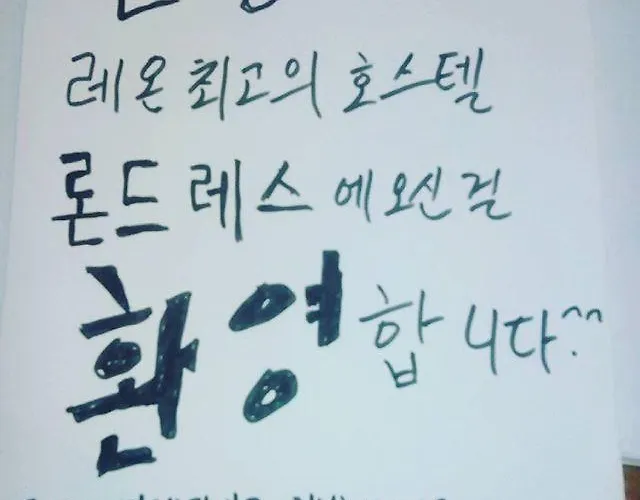 레온 최고의 호스텔
론드레스에 오신걸
환영합니다.^^